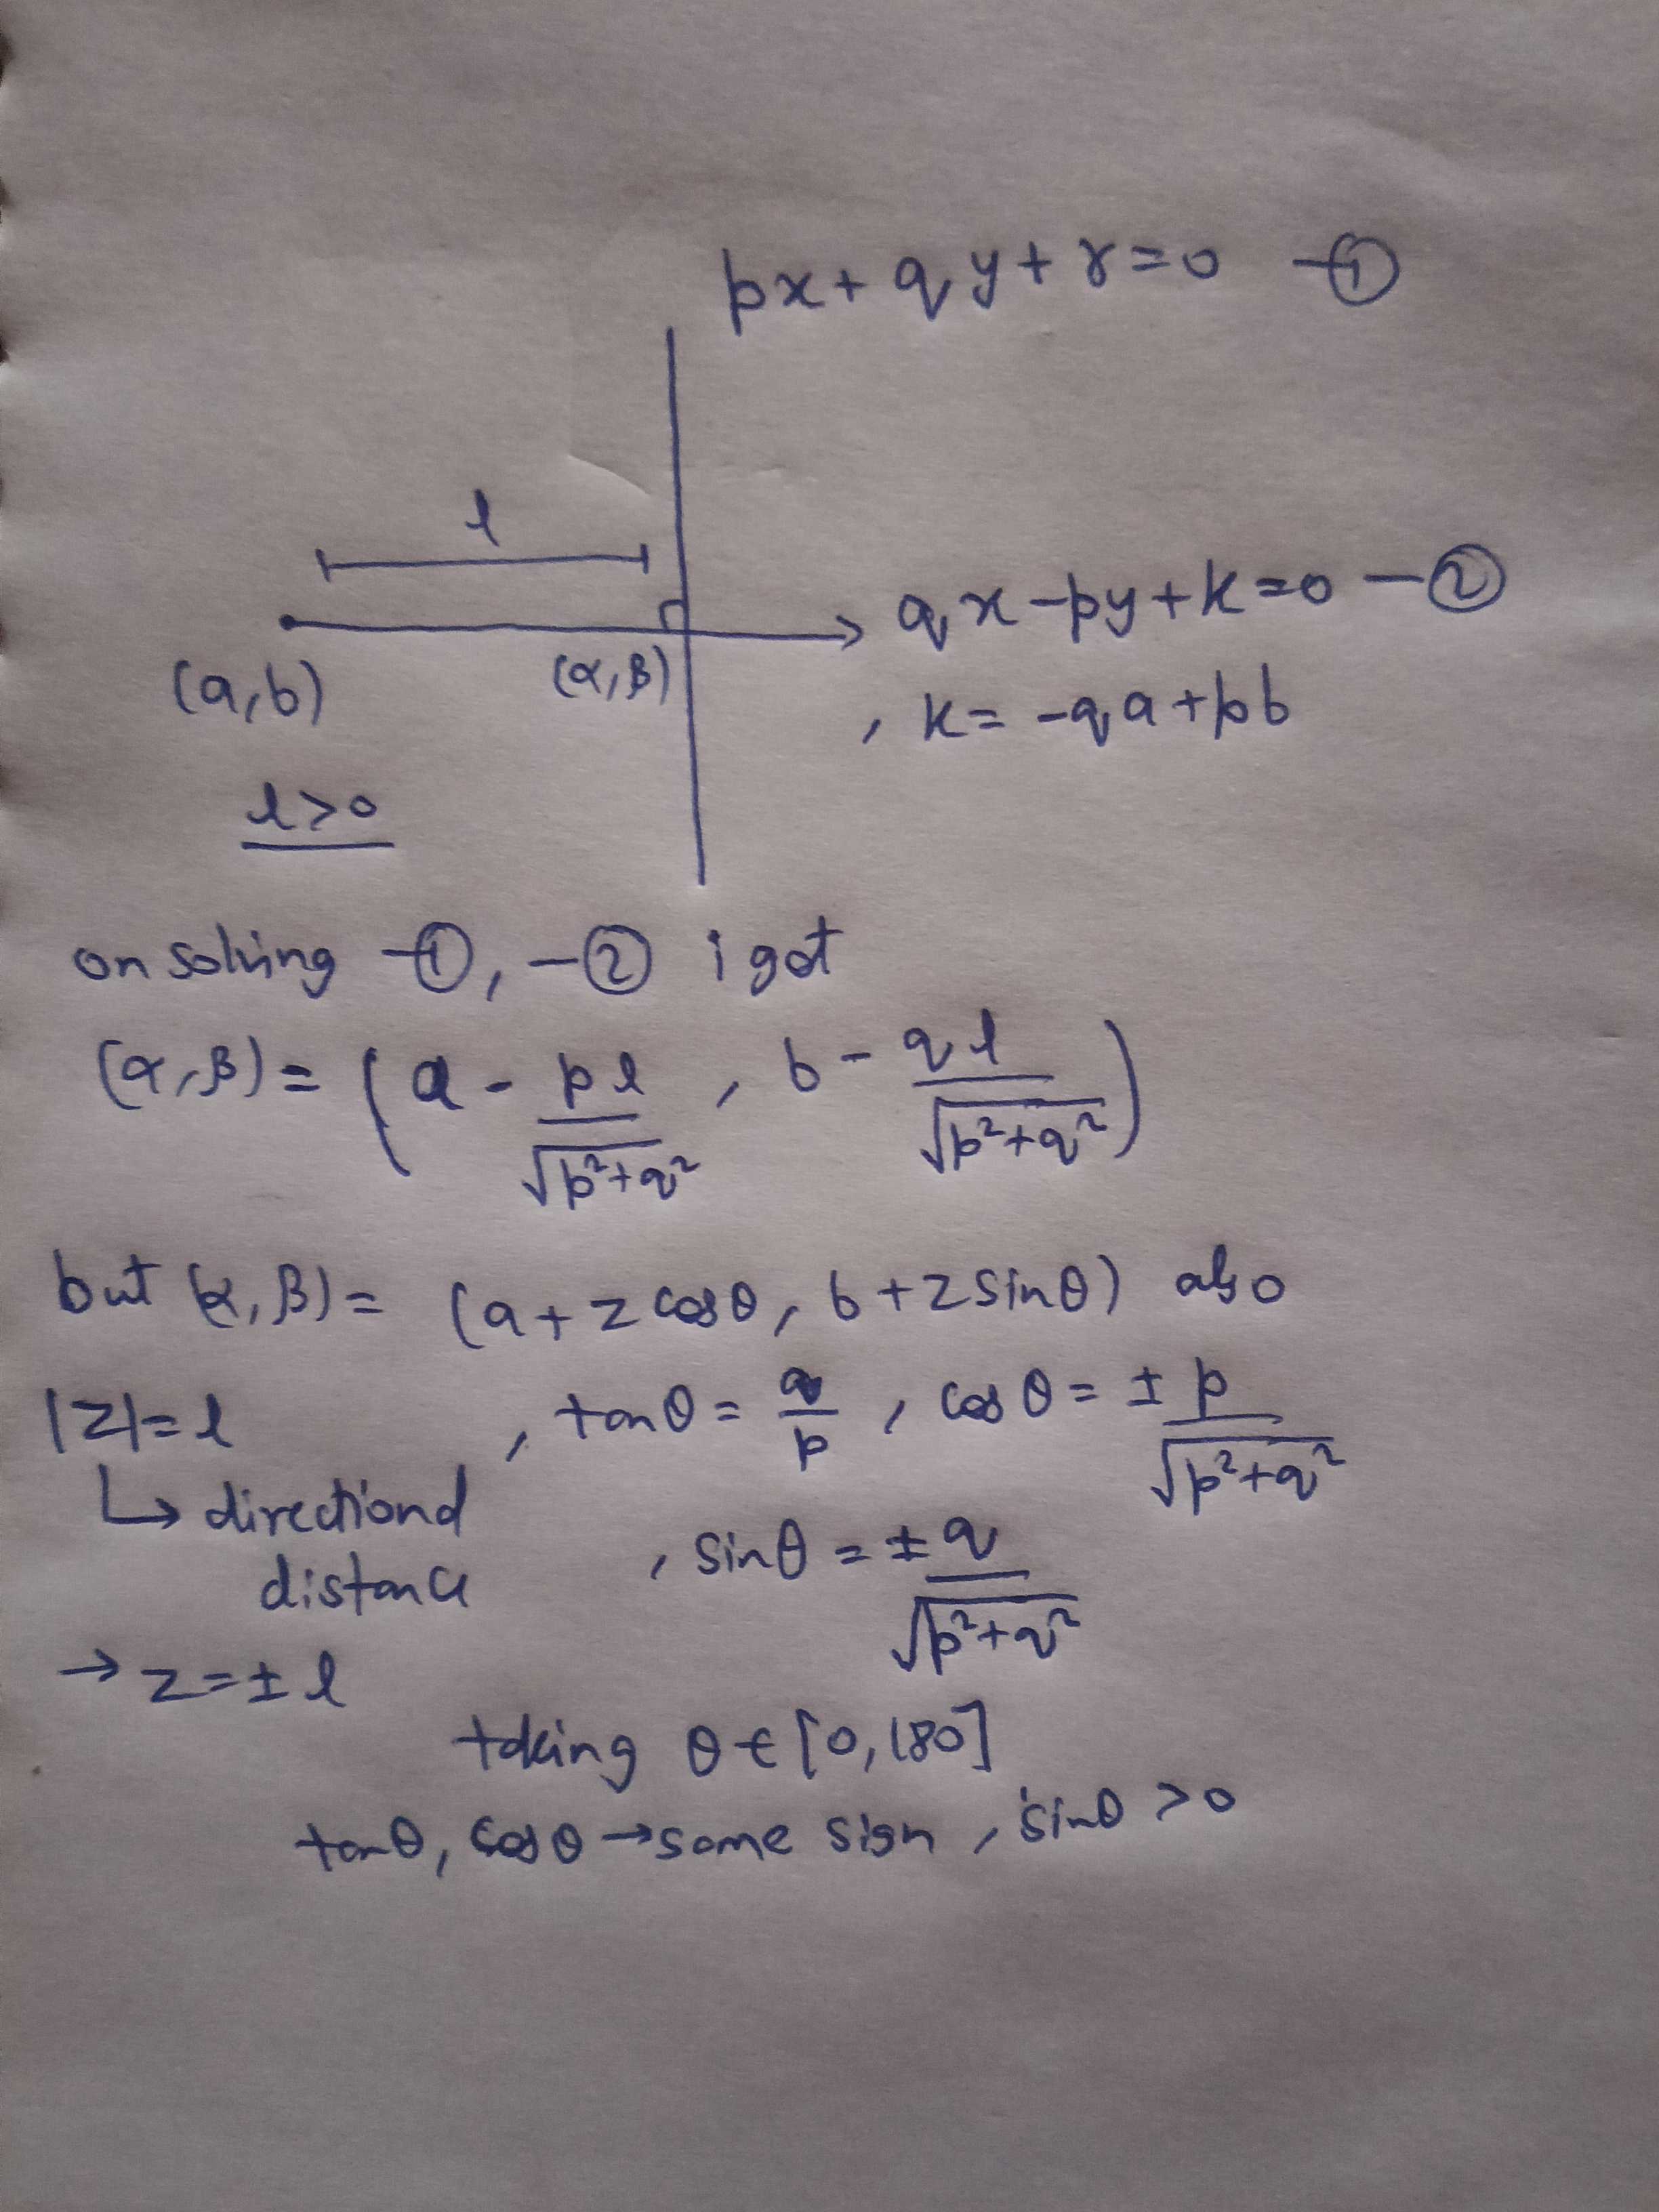 px + qy + r = 0 —①
l
qx - py + k = 0 —②
(a,b)
(α,β)
, k = -qa + pb
l > 0
on solving —①, —② i got
(α,β) = (a - pl/√(p²+q²) , b - ql/√(p²+q²))
but (α,β) = (a + z cosθ, b + z sinθ) also
|z| = l , tanθ = q/p , cosθ = ± p/√(p²+q²)
↳ directional
distance
, sinθ = ± q/√(p²+q²)
→ z = ± l
taking θ ∈ [0,180]
tanθ, cosθ → same sign , sinθ > 0